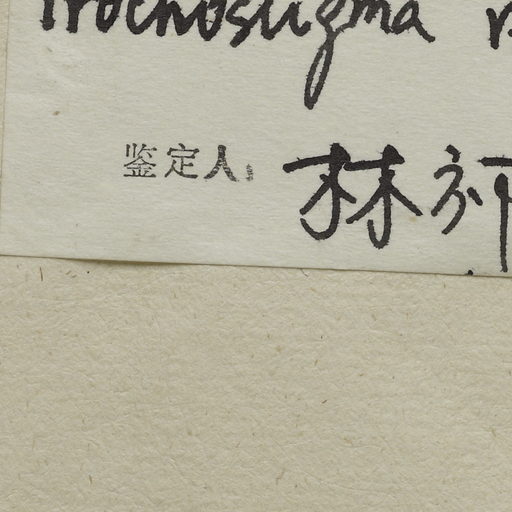 Trochostigma
鉴定人: 林祁